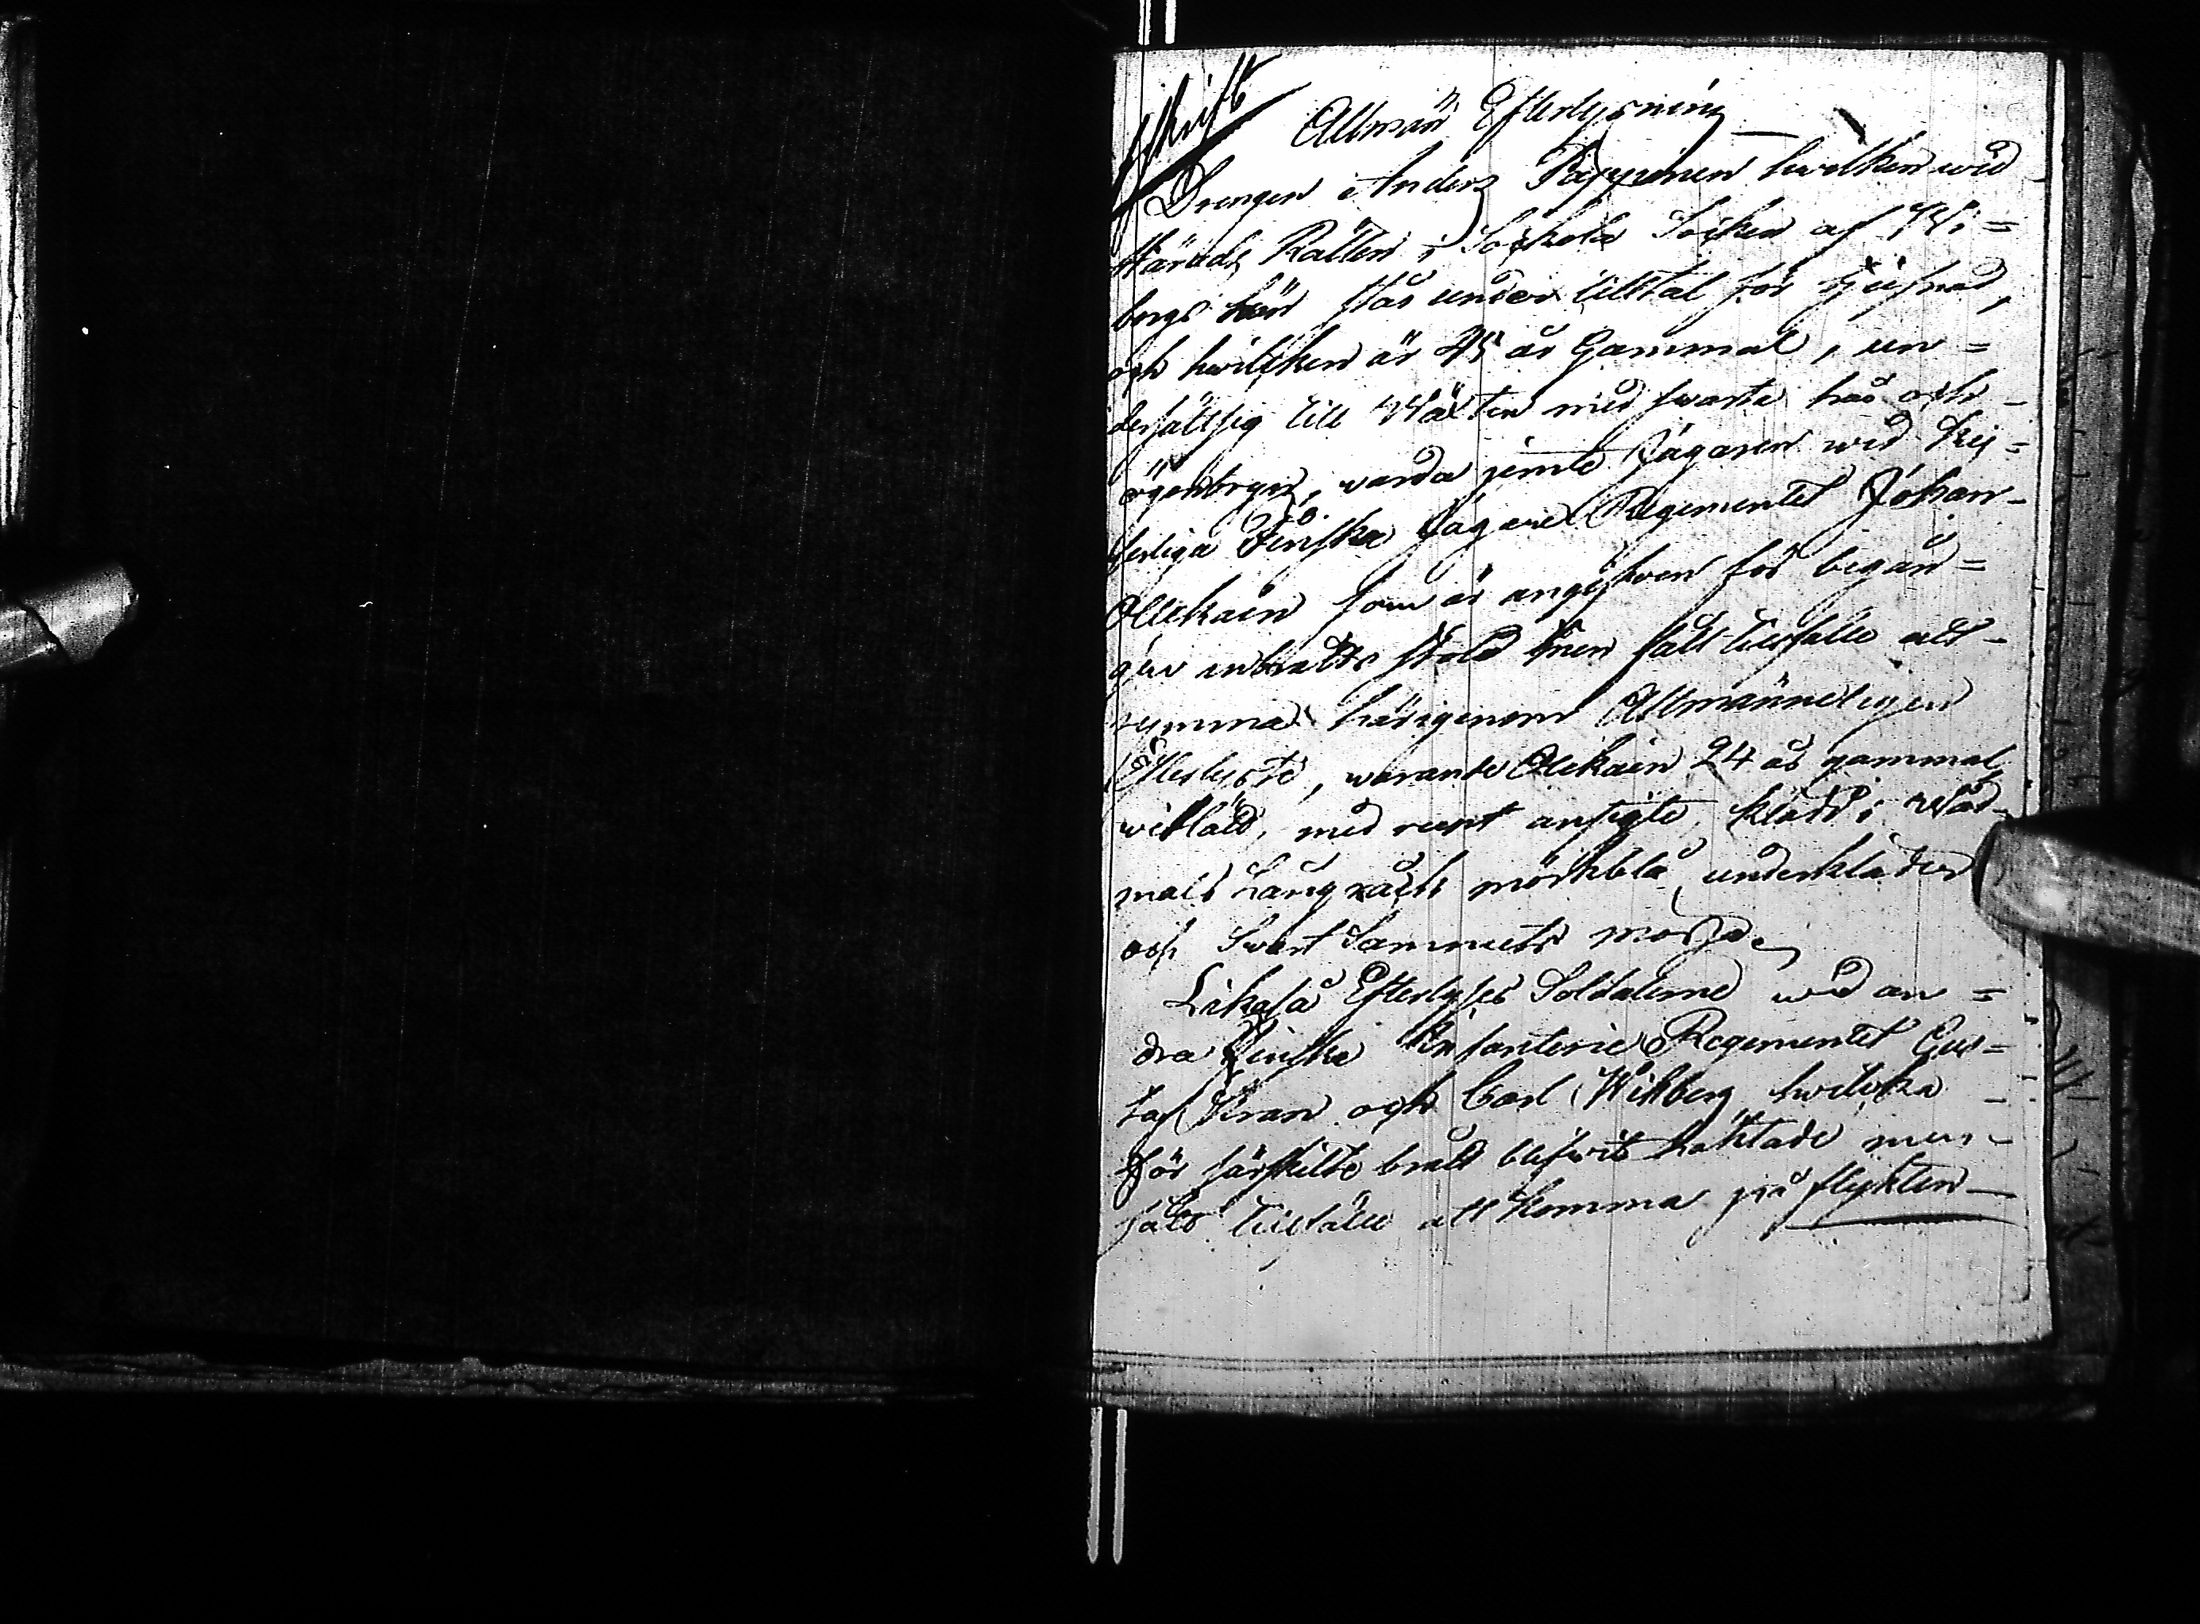 Afskrift
Allmän Efterlysning
Drengen Anders Pappinen hwilken wid
Härads Rätten i Sockola Socken af Wi=
borgs län står under tilltal för tjufnad,
och hwilken är 45 år Gammal, un=
dersättsig till Wäxten med swarta hår och
ögonbryn, warda jemte Jägaren wid Kej=
serliga Finska Jägare Regementet Johan
Ollikain som är angifwen för begån=
gen inbrotts stöld men fått tillfälle att
rymma härigenom Allmänneligen
Efterlyste, warande Olikain 24 år gammal
wäl, med runt ansigte, klädd i Wad=
mals Långrock mörkblå underkläder
och Swart Sammets mössa.
Likaså Efterlyses Soldaterne wid an=
dra Finska Infanterie Regementet Gus=
taf Piran och Carl Wikberg hwilka
för särskilte brott blifwit häktade men
fått tillfälle att komma på flykten